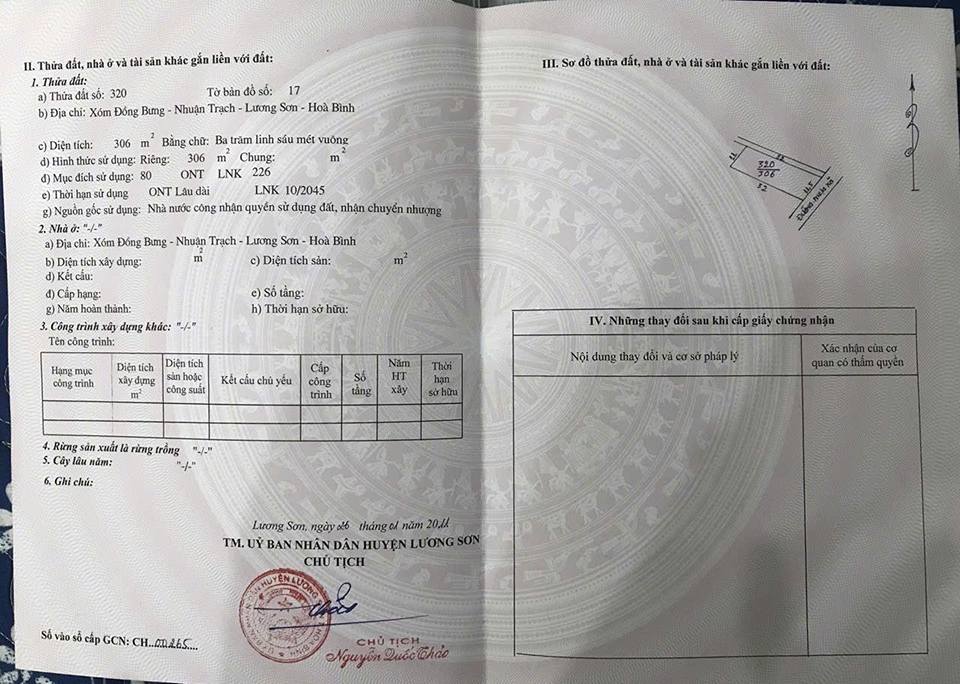 II. Thửa đất, nhà ở và tài sản khác gắn liền với đất:
1. Thửa đất:
a) Thửa đất số: 320 Tờ bản đồ số: 17
b) Địa chỉ: Xóm Đồng Bưng - Nhuận Trạch - Lương Sơn - Hoà Bình
c) Diện tích: 306 m² Bằng chữ: Ba trăm linh sáu mét vuông
d) Hình thức sử dụng: Riêng: 306 m² Chung: m²
đ) Mục đích sử dụng: 80 ONT LNK 226
e) Thời hạn sử dụng ONT Lâu dài LNK 10/2045
g) Nguồn gốc sử dụng: Nhà nước công nhận quyền sử dụng đất, nhận chuyển nhượng
2. Nhà ở: "-/-"
a) Địa chỉ: Xóm Đồng Bưng - Nhuận Trạch - Lương Sơn - Hoà Bình
b) Diện tích xây dựng: m² c) Diện tích sàn: m²
d) Kết cấu:
đ) Cấp hạng: e) Số tầng:
g) Năm hoàn thành: h) Thời hạn sở hữu:
3. Công trình xây dựng khác: "-/-"
Tên công trình:
Hạng mục công trình
Diện tích xây dựng m²
Diện tích sàn hoặc công suất
Kết cấu chủ yếu
Cấp công trình
Số tầng
Năm HT xây
Thời hạn sở hữu
4. Rừng sản xuất là rừng trồng "-/-"
5. Cây lâu năm: "-/-"
6. Ghi chú:
Lương Sơn, ngày tháng 01 năm 20
TM. UỶ BAN NHÂN DÂN HUYỆN LƯƠNG SƠN
CHỦ TỊCH
CHỦ TỊCH
Nguyễn Quốc Thảo
Số vào sổ cấp GCN: CH..00265....
III. Sơ đồ thửa đất, nhà ở và tài sản khác gắn liền với đất:
320
306
32
IV. Những thay đổi sau khi cấp giấy chứng nhận
Nội dung thay đổi và cơ sở pháp lý
Xác nhận của cơ
quan có thẩm quyền